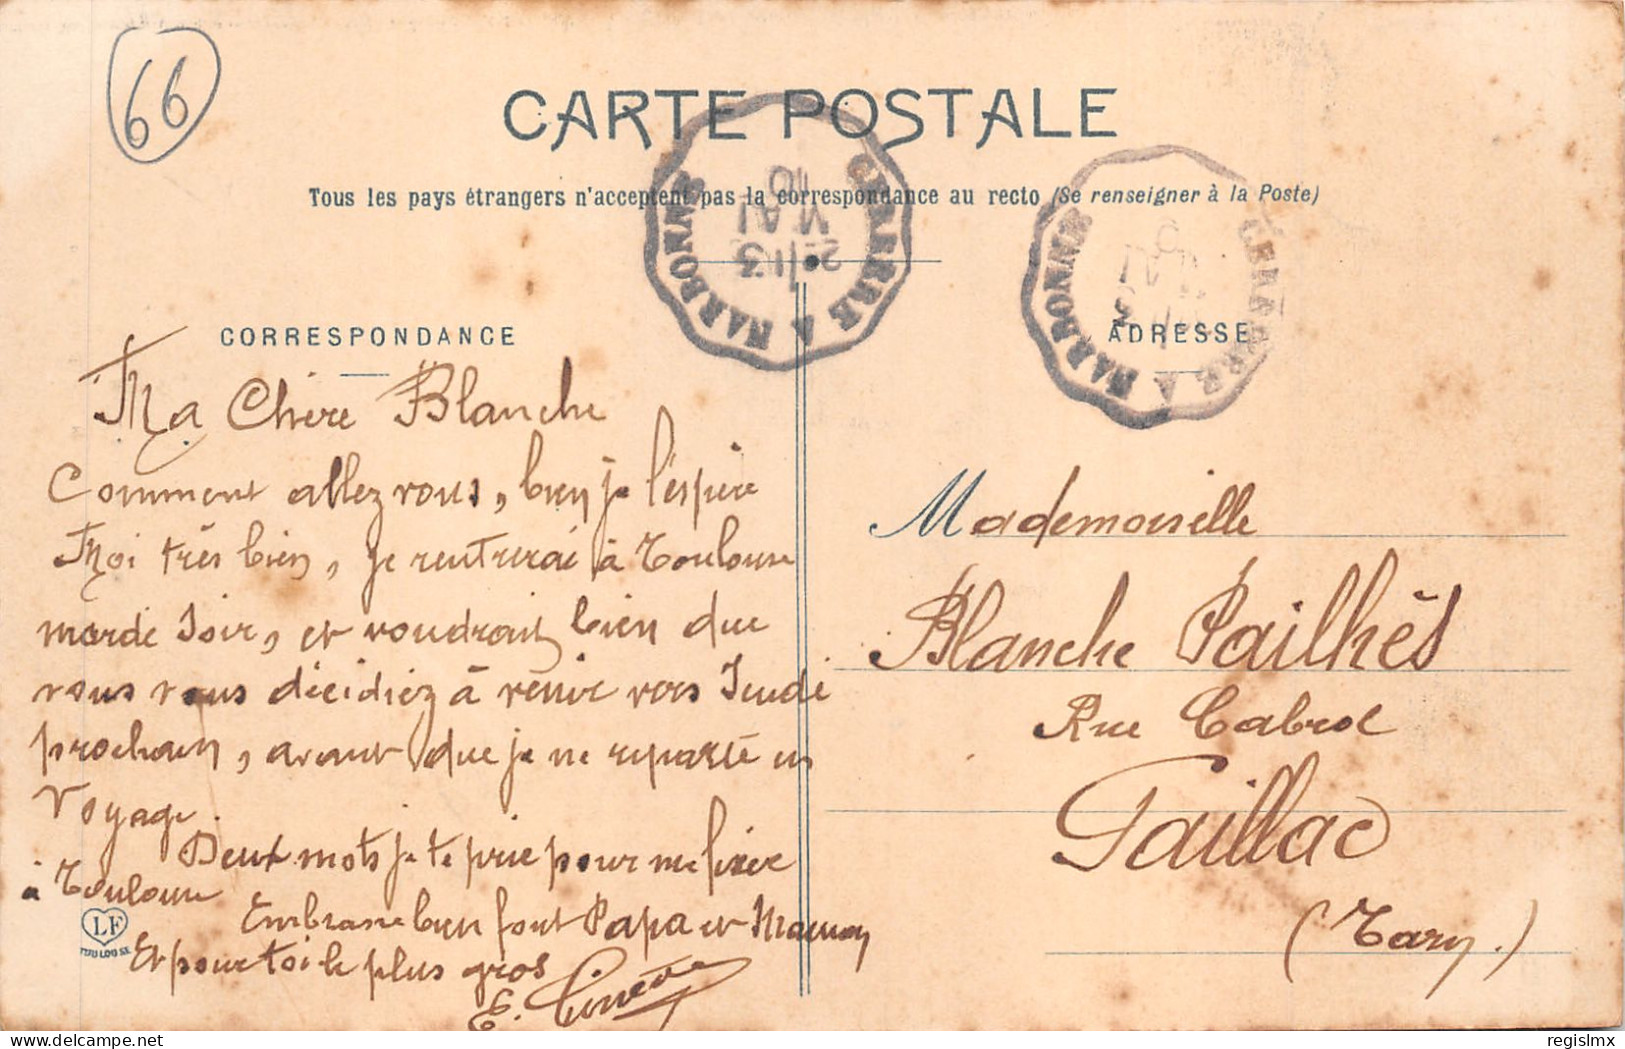 66
CARTE POSTALE
Tous les pays étrangers n'acceptent pas la correspondance au recto (Se renseigner à la Poste)
CERBÈRE A NARBONNE
10
MAI
13
CERBÈRE A NARBONNE
CORRESPONDANCE
Ma Chère Blanche
Comment allez vous, bien je l'espère
Moi très bien, je rentrerai à Toulouse
mardi soir, et voudrait bien que
vous vous décidiez à venir vers Jeudi
prochain, avant que je ne reparte en
Voyage.
Deux mots je te prie pour me fixer
à Toulouse
Embrasse bien fort Papa et Maman
Et pour toi le plus gros
E.
LF
TOULOUSE
ADRESSE
Mademoiselle
Blanche Pailhès
Rue Cabrol
Gaillac
(Tarn.)
delcampe.net
regislmx